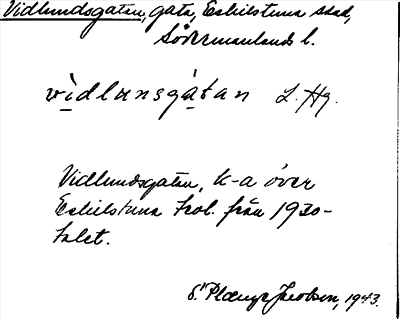 Vidlundsgatan, gata, Eskilstuna stad,
Södermanlands l.
vìdlunsgátan L. Hg.
Vidlundsgatan, k-a över
Eskilstuna fr
från 1930-
talet.
Jacobson, 1943.